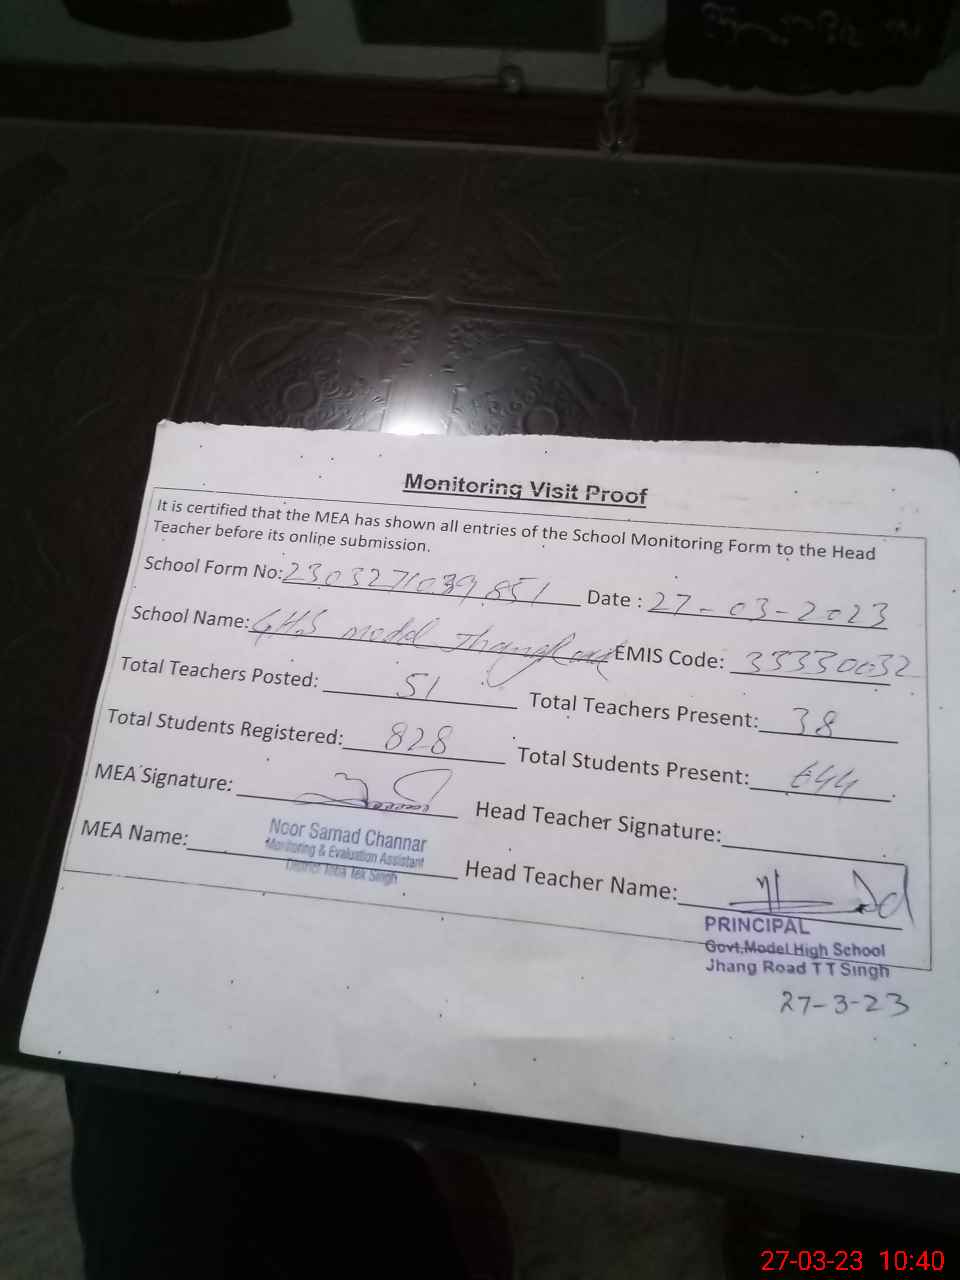 Monitoring Visit Proof
It is certified that the MEA has shown all entries of the School Monitoring Form to the Head
Teacher before its online submission.
School Form No: 2303271039851 Date : 27-03-2023
School Name: GHS model Jhang Road EMIS Code: 33330032
Total Teachers Posted: 51 Total Teachers Present: 38
Total Students Registered: 828 Total Students Present: 644
MEA Signature: Head Teacher Signature:
MEA Name: Noor Samad Channar
Monitoring & Evaluation Assistant
District Toba Tek Singh
Head Teacher Name:
PRINCIPAL
Govt.Model High School
Jhang Road T T Singh
27-3-23
27-03-23 10:40